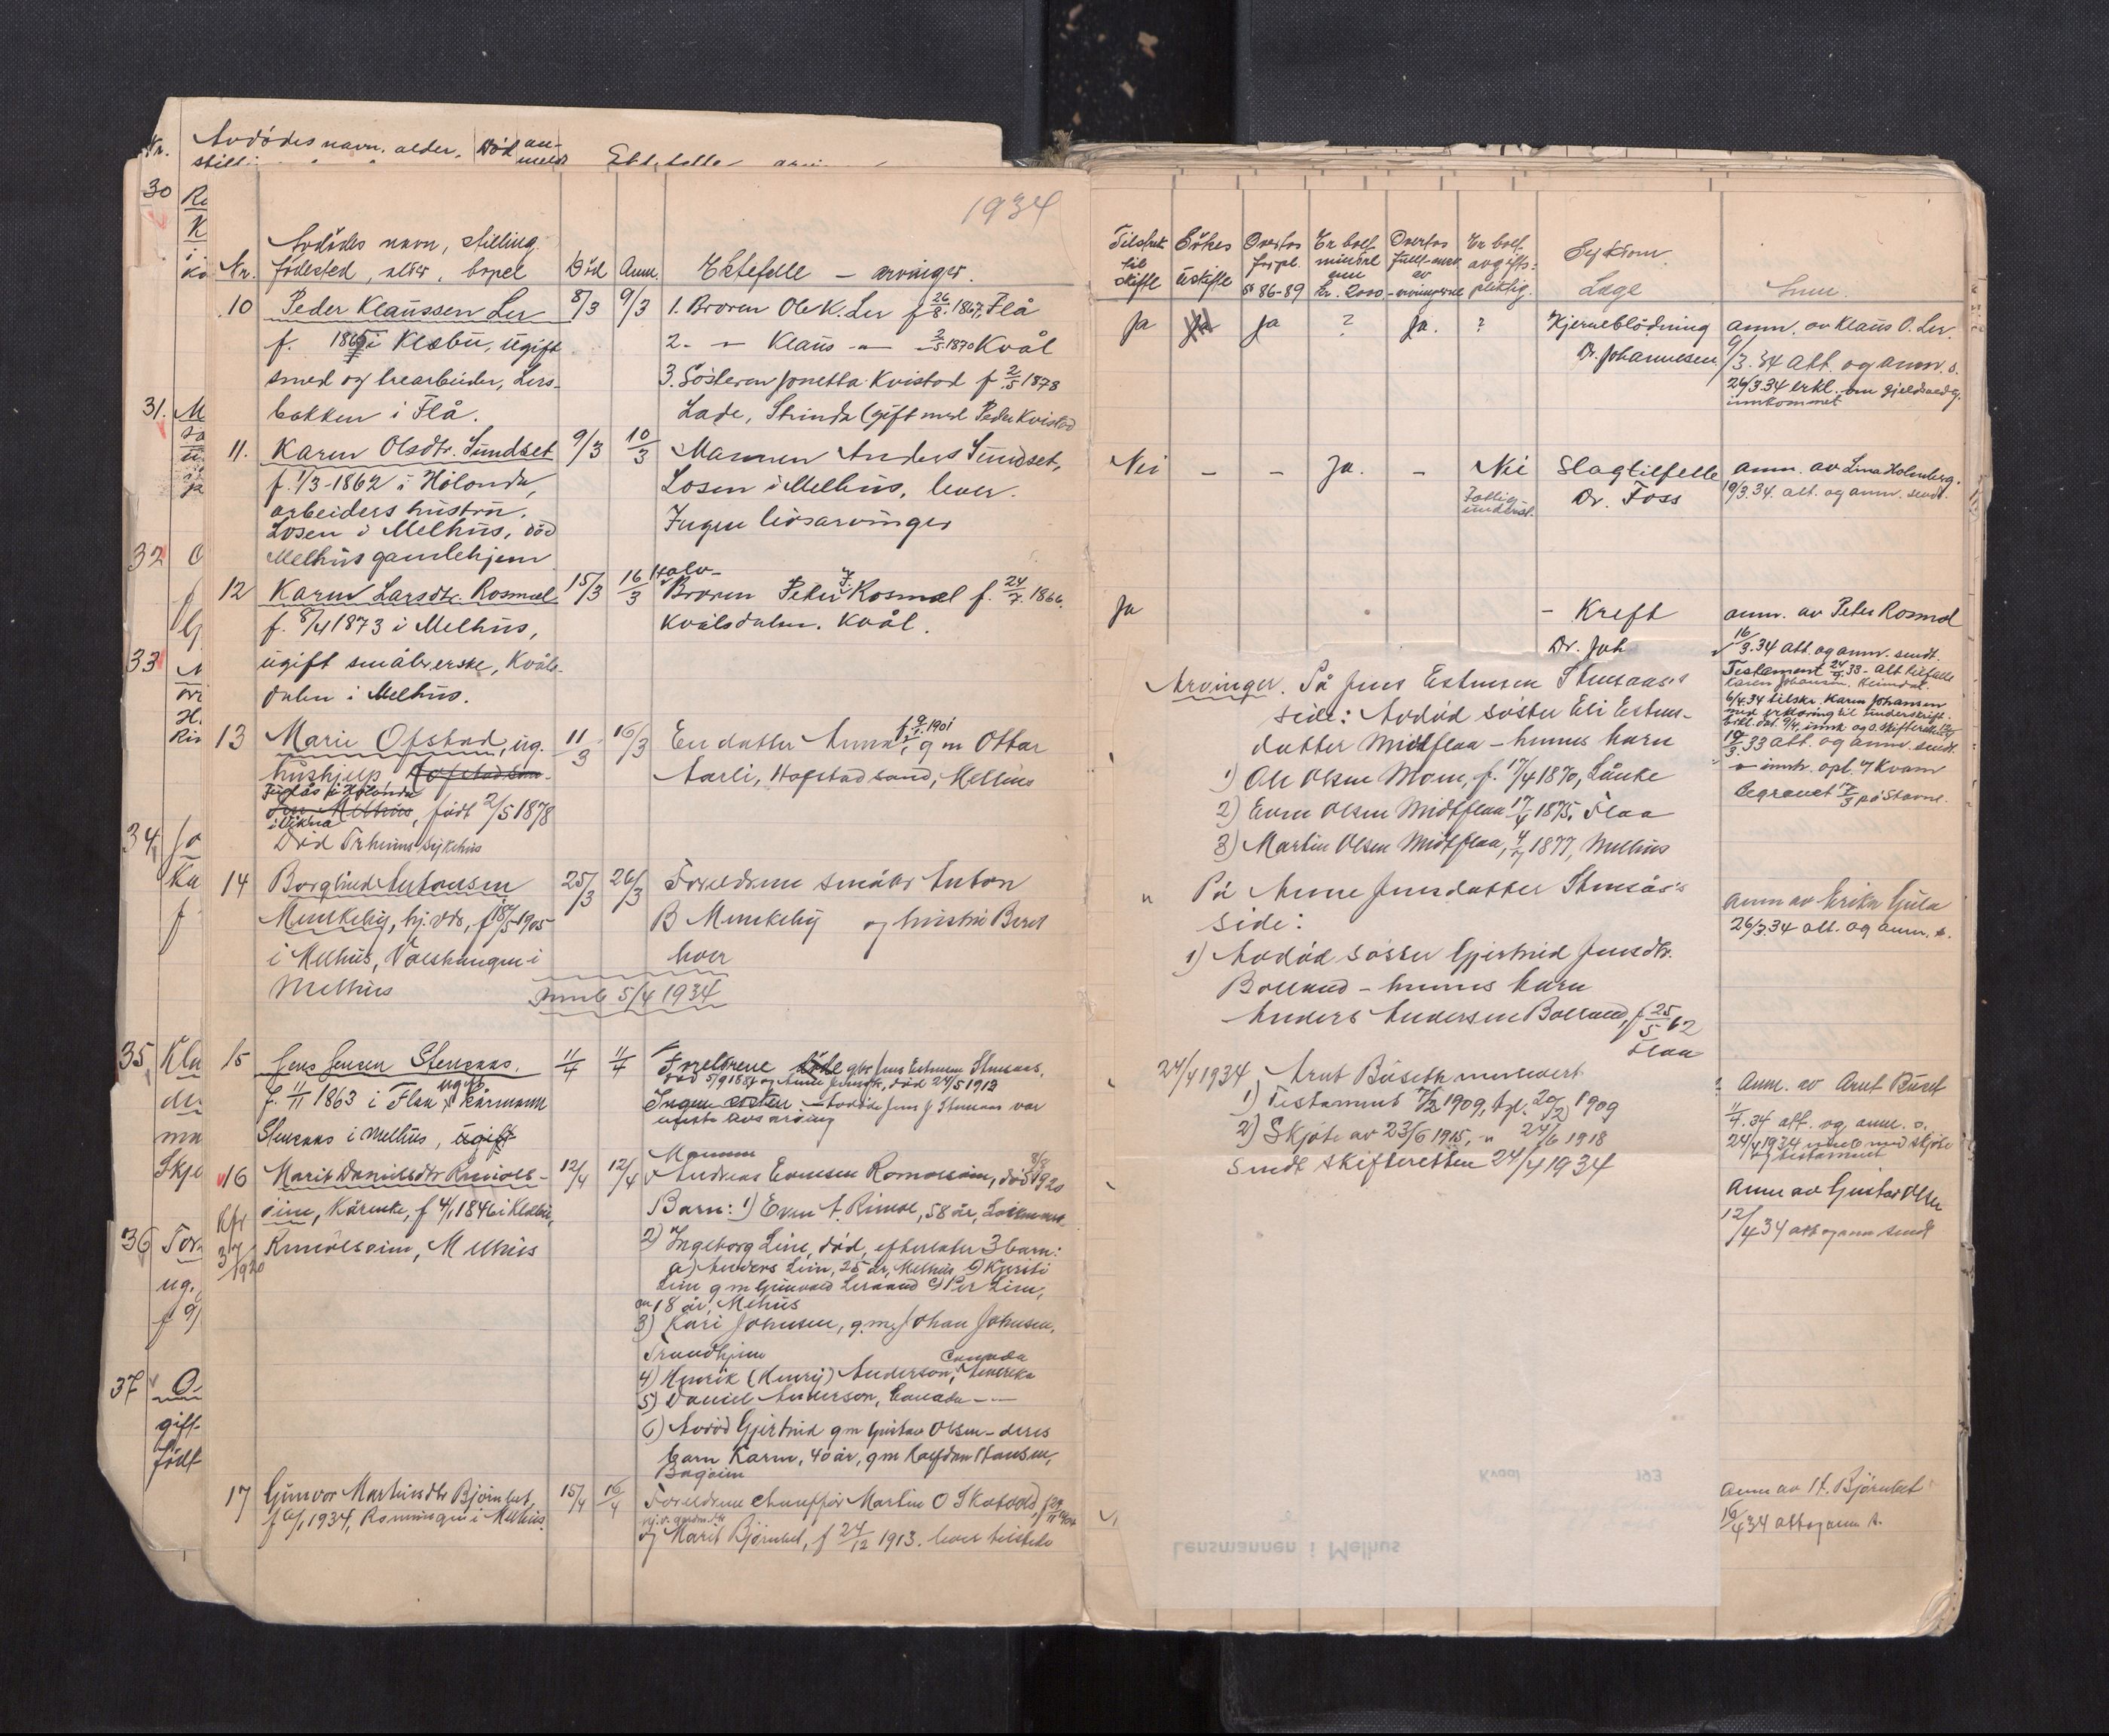 Nr. Avdødes navn, alder, Død an-
meldt
30
31.
32
33
34
35
36
37
1934
Nr. Avdødes navn, stilling
fødested, alder, bopel
Død Anm. Ektefelle – arvinger.
10 Peder Klaussen Ler 8/3 9/3 1. Broren Ole K. Ler f 26/8.1867, Flå
f. 1865 i Klæbu, ugift 2. — Klaus — 2/5.1870 Kvål
smed og trearbeider, Lers- 3. Søsteren Jonetta Kvistad f 2/5 1878
bakken i Flå. Lade, Strinda (gift med Peder Kvistad
11. Karen Olsdtr. Sundset 9/3 10/3 Mannen Anders Sundset,
f. 1/3-1862 i Hølonda, Losen i Melhus, lever.
arbeiders hustru. Ingen livsarvinger
Losen i Melhus, død
Melhus gamlehjem
12 Karen Larsdtr. Rosmæl 15/3 16/3 Halv-
Broren Peter J. Rosmæl f. 24/7.1866.
f. 8/4 1873 i Melhus, Kvålsdalen. Kvål.
ugift småbr.erske, Kvåls-
dalen i Melhus.
13 Marie Ofstad, ug. 11/3 16/3 En datter Anna, f 9/7.1901 g m Ottar
hushjelp, Hofstadsan- Aarli, Hofstad sand, Melhus
i Hølonda
den Melhus, født 2/5 1878
Død Trheims sykehus
14 Borghild Antonsen 25/3 26/3 Foreldrene småbr Anton
Munkeby, hj. dtr, f 18/5 1905 B Munkeby og hustru Beret
i Melhus, Valshaugen i lever
Melhus
Innb 5/4 1934
15 Jens Jensen Stensaas. 11/4 11/4 Foreldrene døde gbr Jens Estensen Stensaas,
død 5/9 1884 og Anne Jensdtr, død 24/5 1912
f. 11/11 1863 i Flaa, ugift Kårmann Ingen søsken – Avdøde Jens J Stensaas var
eneste livsarving
Stensaas i Melhus, ugift
16 Marit Danielsdtr Rimols- 12/4 12/4 Mannen
Andreas Evensen Romolsøien, død 8/8 1920
øien, Kårenke, f 4/1 1846 i Klæbu, Barn: 1) Even A. Rimol, 58 år,
Rimolsøien, Melhus 2) Ingeborg Lein, død, efterlater 3 barn:
a) Anders Lein, 25 år, Melhus b) Kjersti
Lein g m Gunvald Lersand c) Per Lein,
18 år, Melhus
3) Kari Johnsen, g.m. Johan Johnsen,
Trondhjem
4) Henrik (Henry) Anderson, Canada Amerika
5) Daniel Anderson, Canada —
6) Avdød Gjertrud g m Gustav Olsen – deres
barn Karen, 40 år, g m Halfdan Hansen,
17 Gunvor Martinsdtr Bjørnbet, 15/4 16/4 Foreldrene chauffør Martin O Skotvold,
f 6/1 1934, Rønningen i Melhus. og Marit Bjørnbet, f 24/12 1913. lever tilstede
Tilstrek til skifte Søkes uskifte Overtas forpl. § 86-89 Er boet mindre enn kr. 2000 Overtas av arvingerne Er boet avgifts-pliktig. Sykdom. Læge Anm.
Ja Ja Ja ? Ja. ? Hjerneblødning anm. av Klaus O. Ler.
Dr. Johannesen 9/3.34 att. og anm. s.
26/3.34 erkl. om gjeldsvedg.
innkommet
Nei – – Ja. – Nei Slagtilfelle anm. av Lina Holmberg.
Fattig-
underst.
Dr. Foss 10/3.34. att. og anm. sendt.
Ja – Kreft anm. av Peter Rosmæl
Dr. Joh 16/3.34 att. og anm. sendt.
Testament 24/9.33 – alt tilfalle
Karen Johansen, Heimdal.
6/4 34 tilskr. Karen Johansen
med erklæring til underskrift.
Erkl. dat. 9/4, innk og s. skifteretten 12/4
att. og anm. sendt
Begravet 17/3 på Stavne.
Arvinger. På Jens Estensen Stensaas's
side: Avdød søster Eli Estens-
datter Midtflaa – hennes barn
1) Ole Olsen Moen, f. 17/4 1870, Lånke
2) Even Olsen Midtflaa 17/4 1875, Flaa
3) Martin Olsen Midtflaa, 4/7 1877, Melhus
På Anne Jensdatter Stensås's
side:
1) Avdød søster Gjertrud Jensdtr.
Bolland – hennes barn
Anders Andersen Bolland, f 25/5 62
Flaa
24/4 1934 Arnt Buseth innlevert
1) Testament 7/2 1909, tgl. 20/2 1909
2) Skjøte av 23/6 1915, " 24/6 1918
sendt skifteretten 24/4 1934
anm av Erika Gula
26/3.34 att. og anm. s.
Anm. av Arnt Buset
11/4.34 att. og anm. s.
24/4 1934 innlev med skjøte
og testament
Anm av Gustav Olsen
12/4 34 att og anm sendt
anm av H. Bjørnbet
16/4 34 att og anm s.
Kvaal 193
Lensmannen i Melhus